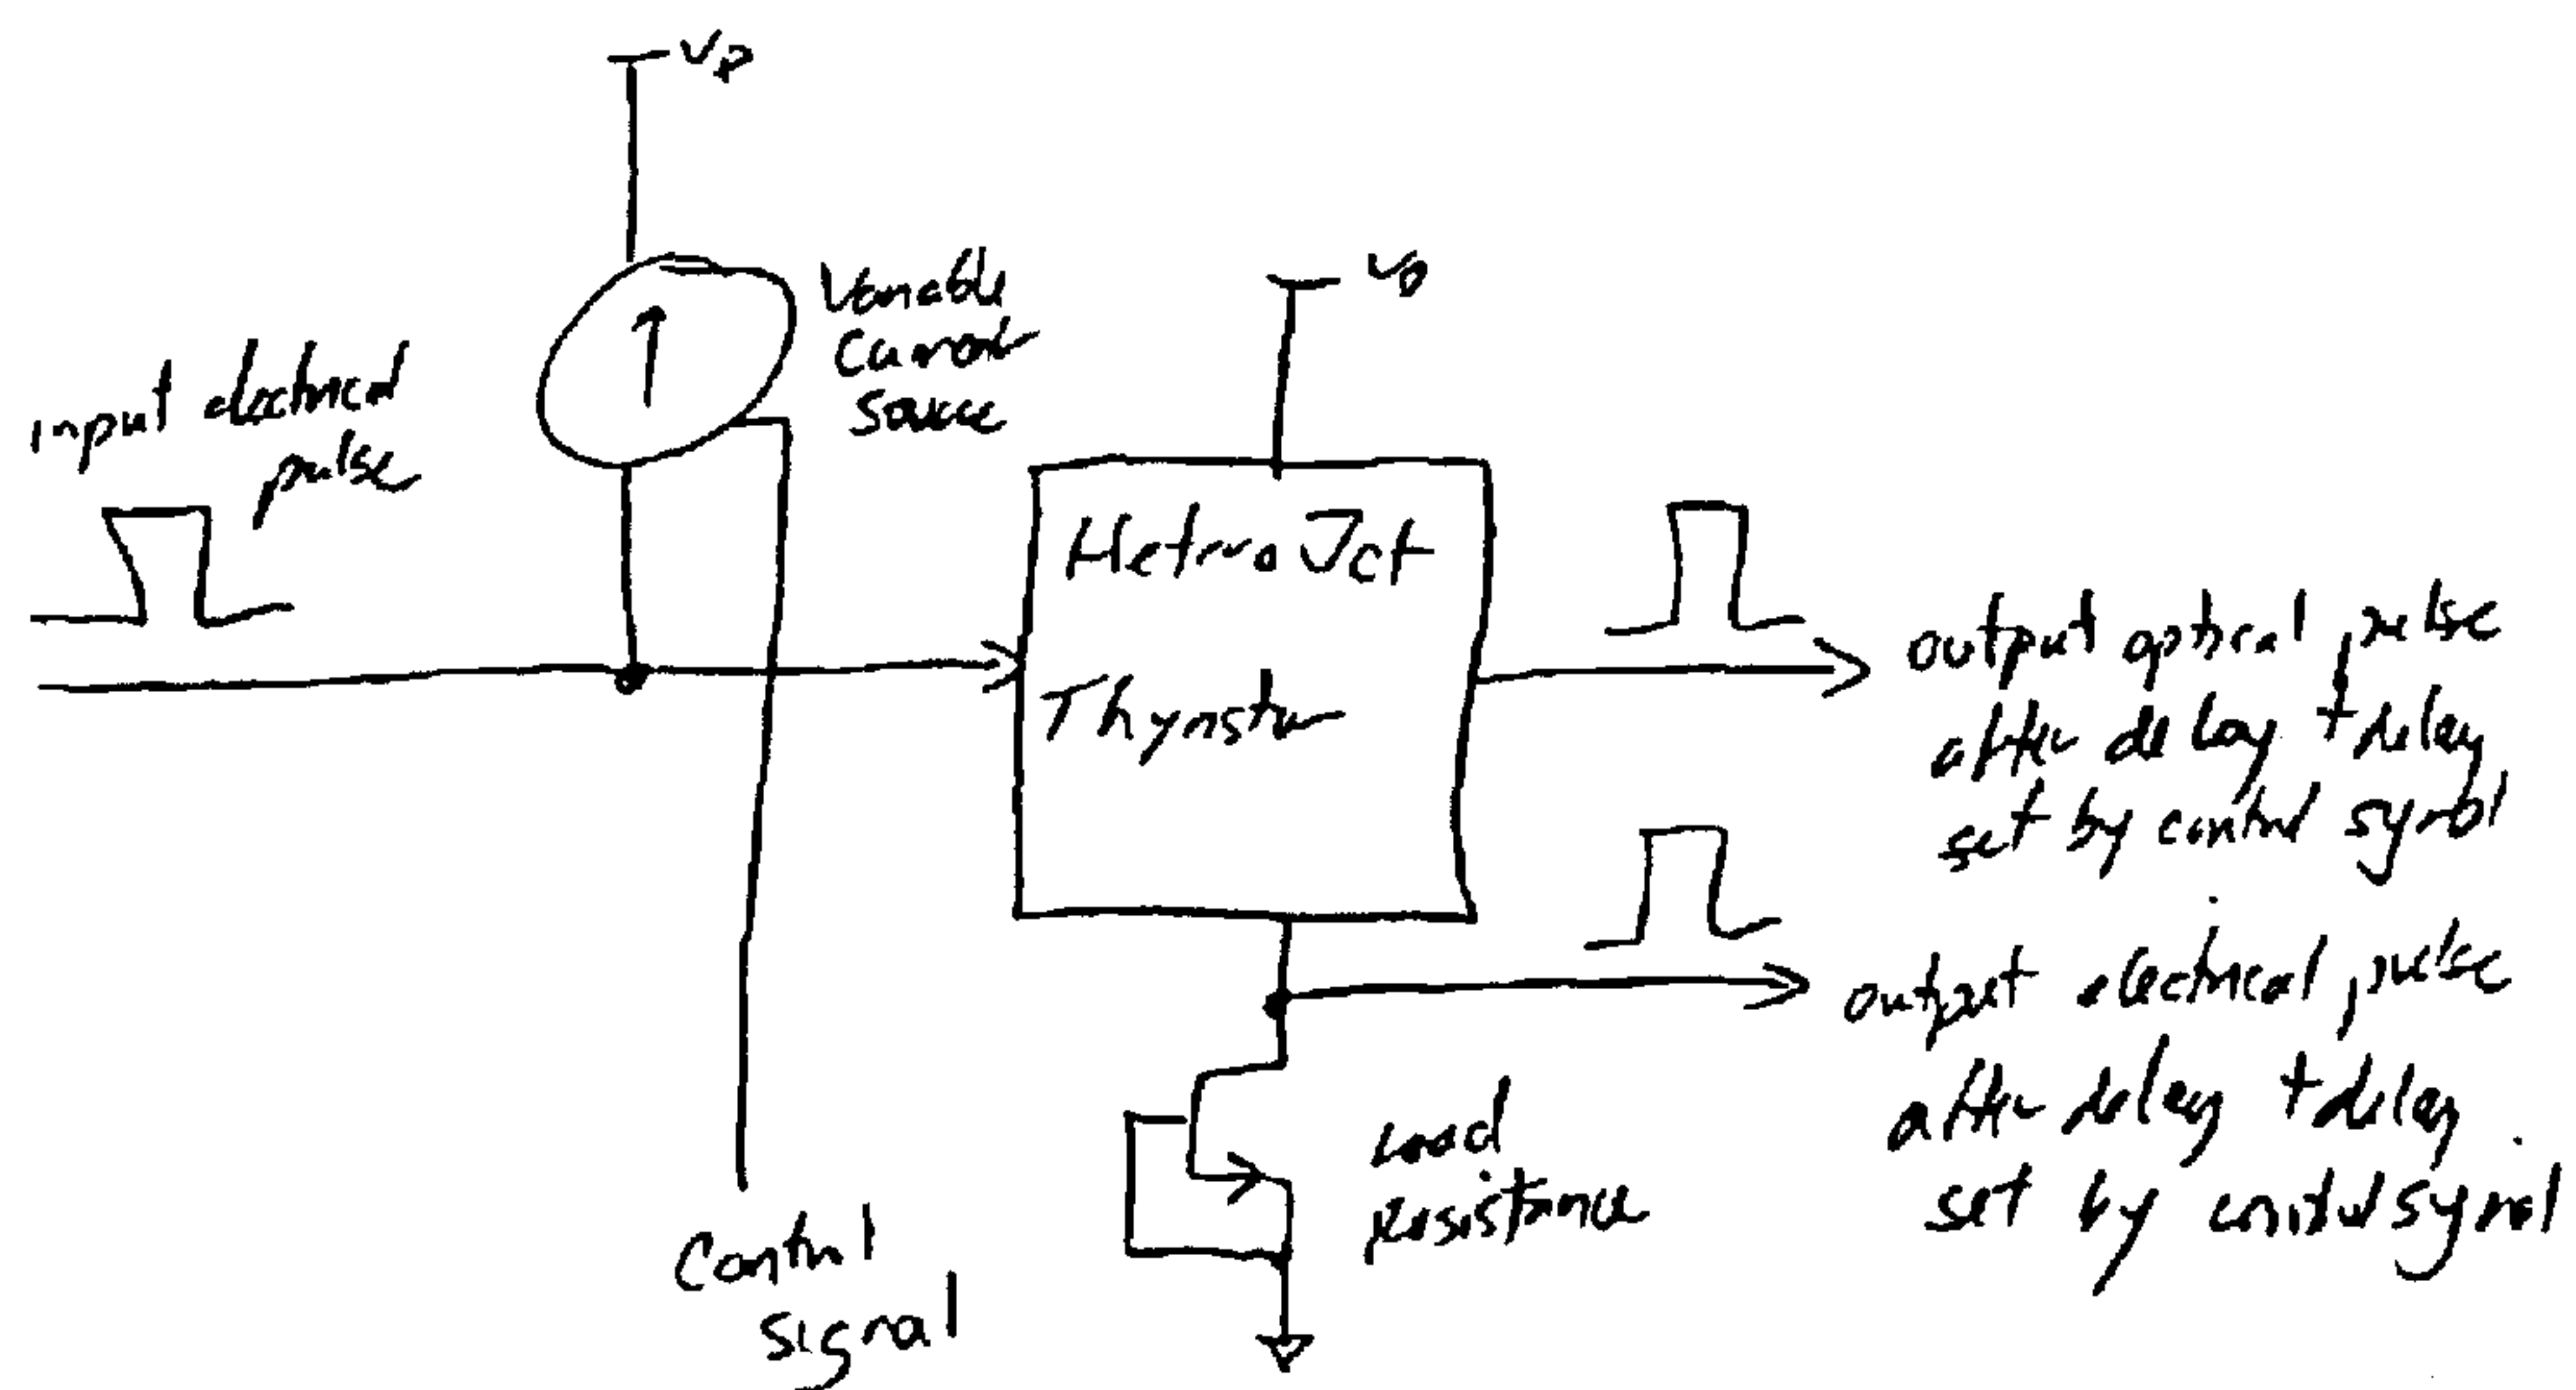 VD
VD
Variable
Current
Source
input electrical
pulse
Hetero Jct
Thyristor
output optical pulse
after delay tdelay
set by control signal
output electrical pulse
after delay tdelay
set by control signal
Load
Resistance
Control
signal